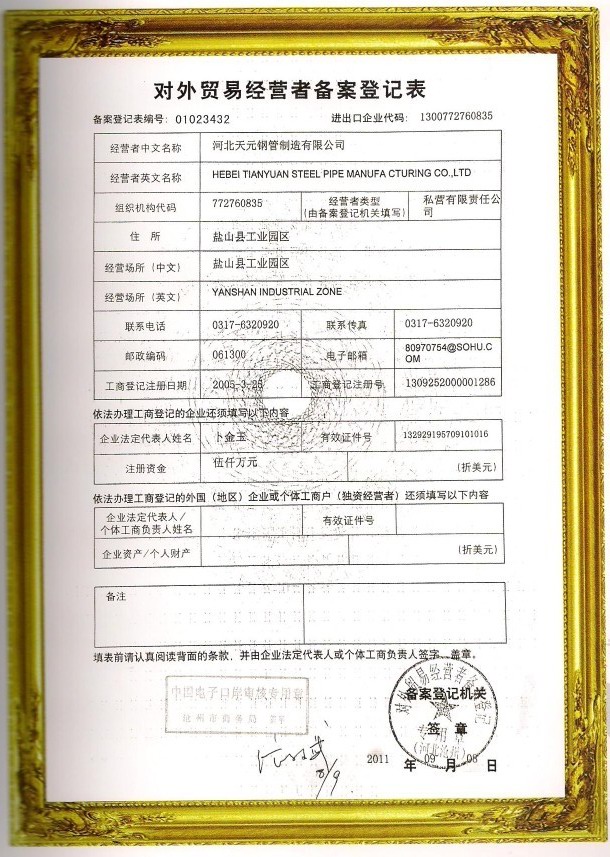 对外贸易经营者备案登记表
备案登记表编号: 01023432 进出口企业代码: 1300772760835
经营者中文名称 河北天元钢管制造有限公司
经营者英文名称 HEBEI TIANYUAN STEEL PIPE MANUFA CTURING CO.,LTD
组织机构代码 772760835 经营者类型 (由备案登记机关填写) 私营有限责任公司
住 所 盐山县工业园区
经营场所（中文） 盐山县工业园区
经营场所（英文） YANSHAN INDUSTRIAL ZONE
联系电话 0317-6320920 联系传真 0317-6320920
邮政编码 061300 电子邮箱 80970754@SOHU.COM
工商登记注册日期 2005-3-25 工商登记注册号 1309252000001286
依法办理工商登记的企业还须填写以下内容
企业法定代表人姓名 卜金玉 有效证件号 132929195709101016
注册资金 伍仟万元 (折美元)
依法办理工商登记的外国（地区）企业或个体工商户（独资经营者）还须填写以下内容
企业法定代表人/
个体工商负责人姓名 有效证件号
企业资产/个人财产 (折美元)
备注
填表前请认真阅读背面的条款，并由企业法定代表人或个体工商负责人签字、盖章。
对外贸易经营者备案登记
备案登记机关
签 章
专用章
2011 年 09 月 08 日